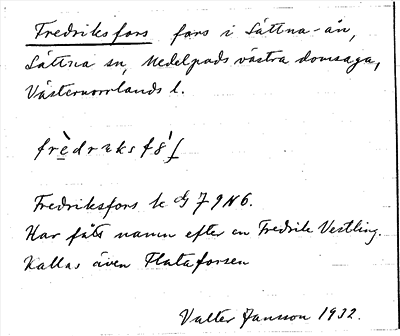 Fredriksfors fors i Sättna-ån,
Sättna sn, Medelpads västra domsaga,
Västernorrlands l.
Fredriksfors k 79 N6.
Har fått namn efter en Fredrik Vestling.
Kallas även Flataforsen
Valter Jansson 1932.